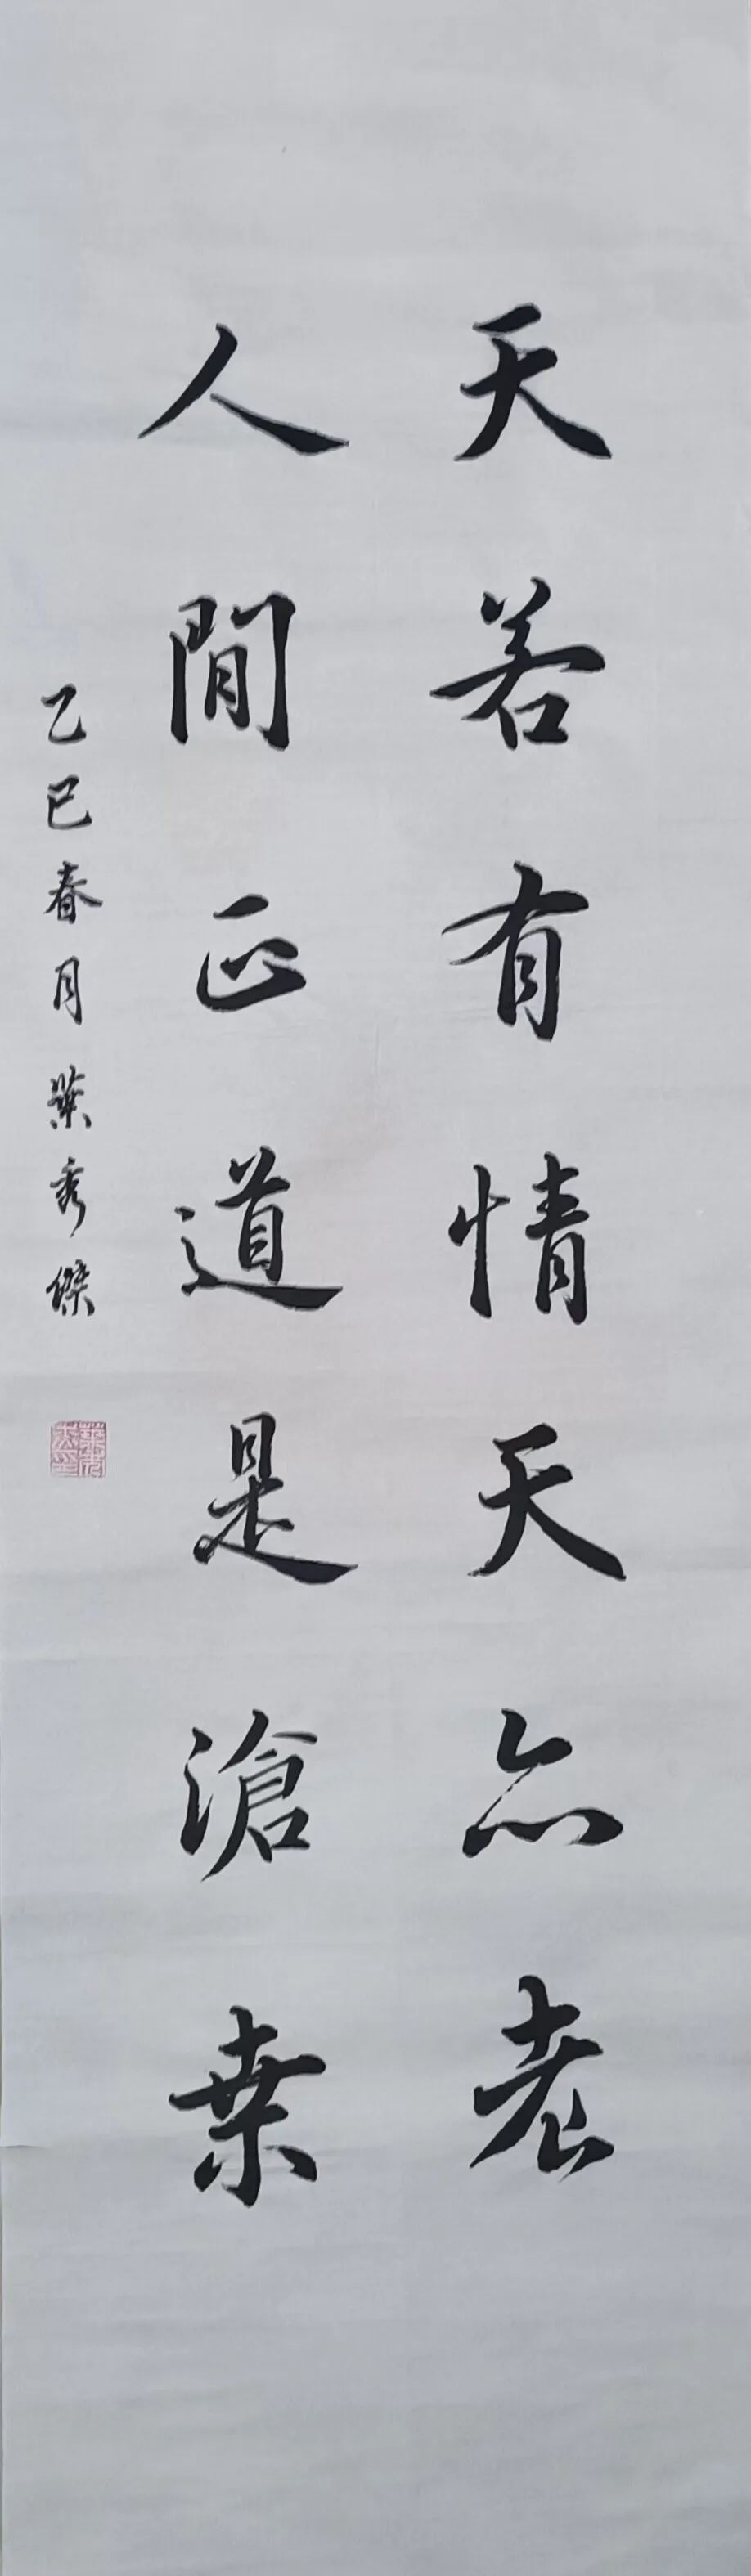 天若有情天亦老
人間正道是滄桒
乙巳春月葉秀傑